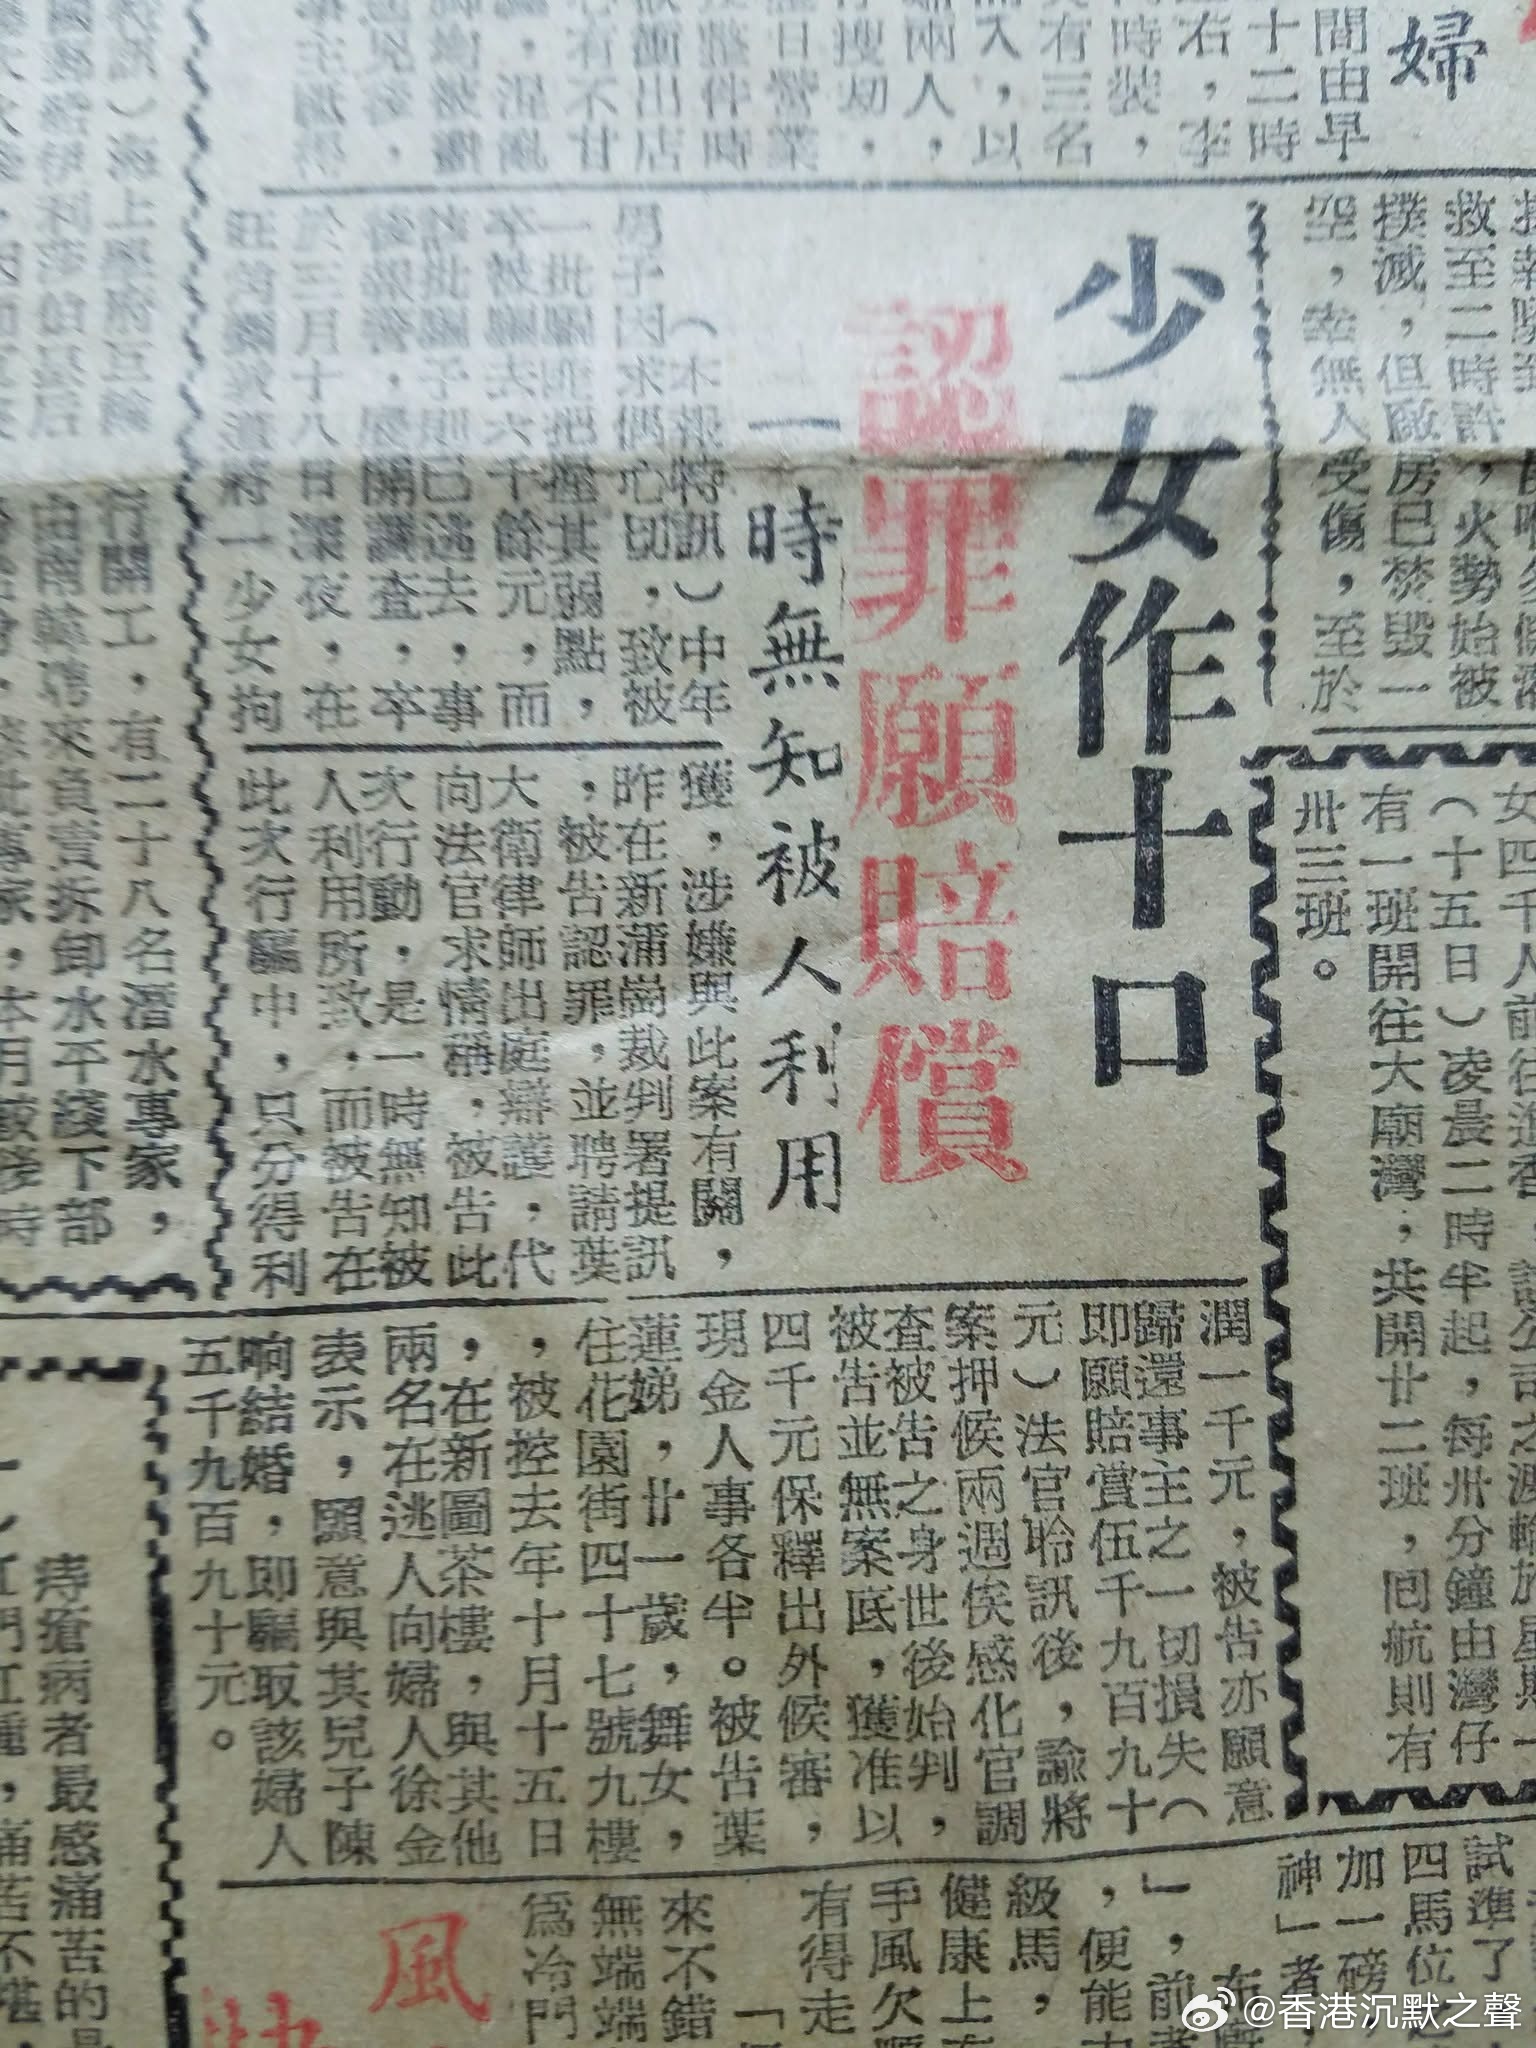 少女作十口
認罪願賠償
一時無知被人利用
（本報特訊）中年
男子因求偶心切，致被
一批騙匪把握其弱點，
卒被騙去六千餘元，而
該批騙子則已逃去，事
後報警，展開調查，卒
於三月十八日深夜，在
旺角鬧市道將一少女拘
獲，涉嫌與此案有關，
昨在新蒲崗裁判署提訊
，被告認罪，並聘請葉
大衛律師出庭辯護，代
向法官求情稱，被告此
次行動，是一時無知被
人利用所致，而被告在
此次行騙中，只分得利
潤一千元，被告亦願意
歸還事主之一切損失（
即願賠賞伍千九百九十
元）法官聆訊後，諭將
案押候兩週俟感化官調
查被告之身世後始判，
被告並無案底，獲准以
四千元保釋出外候審，
現金人事各半。被告葉
蓮娣，廿一歲，舞女，
住花園街四十七號九樓
，被控去年十月十五日
，在新圖茶樓，與其他
兩名在逃人向婦人徐金
表示，願意與其兒子陳
响結婚，即騙取該婦人
五千九百九十元。
婦
間由早
十二時
右，李
時裝，
有三名
入，以
兩人，
搜刼，
日營業
件時
出店
有不甘
救至二時許，火勢始被
撲滅，但廠房已焚毀一
空，幸無人受傷，至於
（十五日）凌晨二時半起，每卅分鐘由灣仔
有一班開往大廟灣，共開廿二班，囘航則有
卅三班。
行關工，有二十八名潛水專家，
由南韓聘來負責拆卸水平綫下部
痔瘡病者最感痛苦的
試準了
四馬位
加一磅
神」者
」，前者
，便能
級馬，
健康上
手風欠
有得走
來不錯
無端端
為冷門
風
@香港沉默之聲